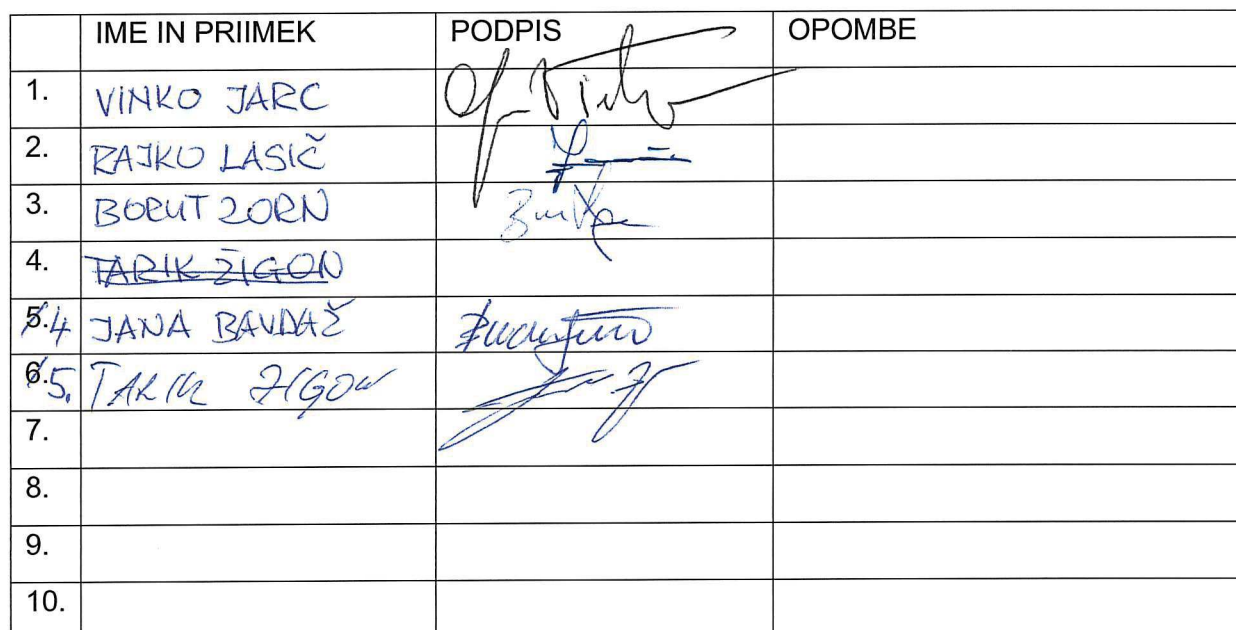 IME IN PRIIMEK PODPIS OPOMBE
1. VINKO JARC
2. RAJKO LASIČ
3. BORUT ZORN
4. TARIK ŽIGON
5.4 JANA BAVDAŽ
6.5. TARIK ŽIGON
7.
8.
9.
10.